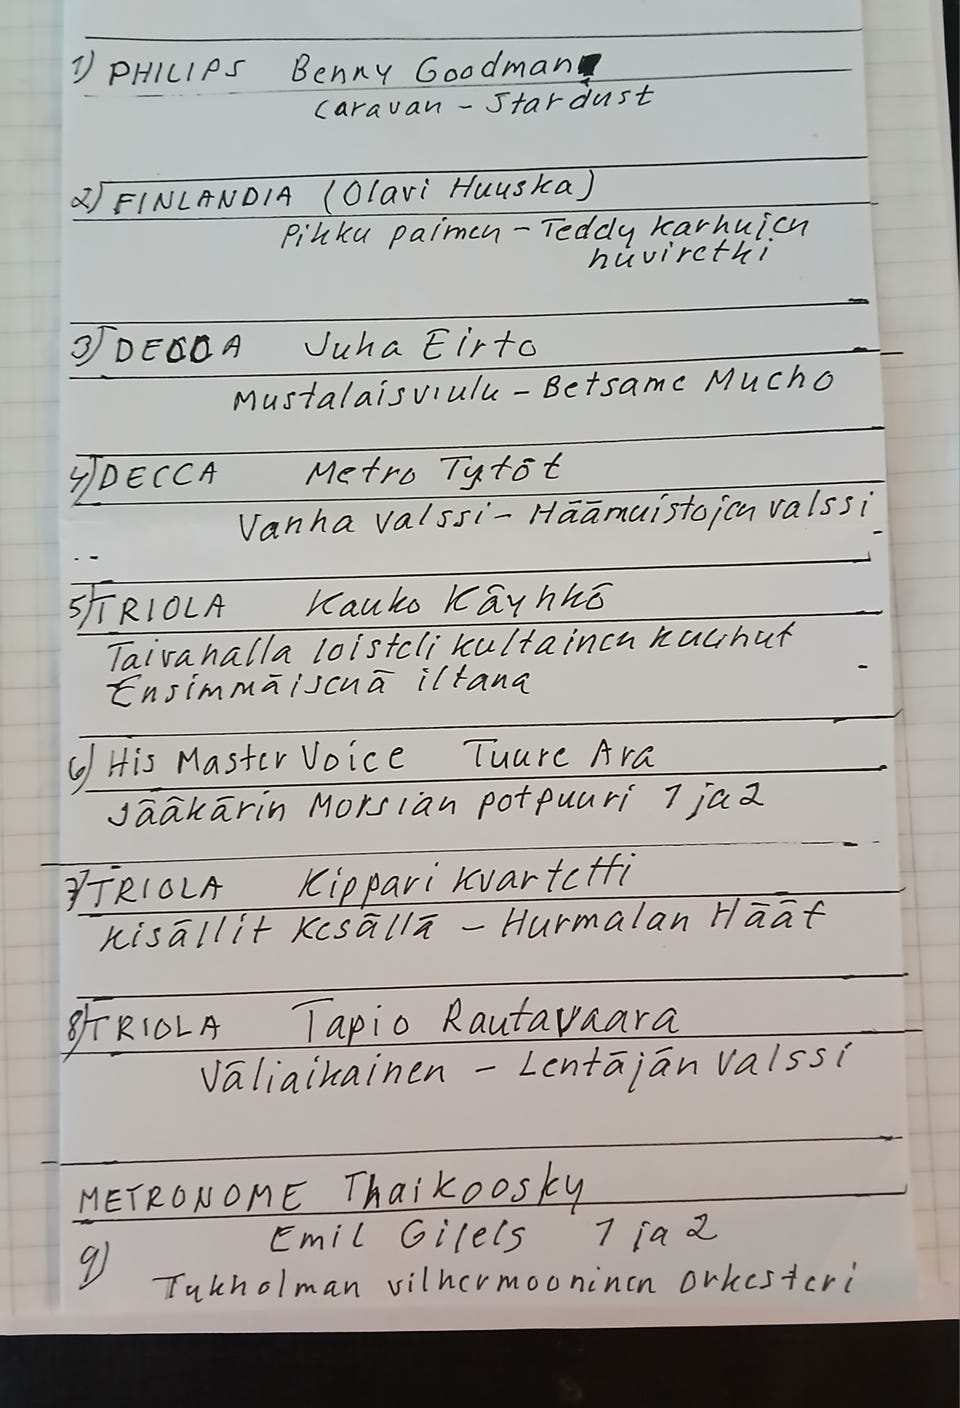 1) PHILIPS Benny Goodman
Caravan - Stardust
2) FINLANDIA (Olavi Huuska)
Pikku paimen - Teddy karhujen
huviretki
3) DECCA Juha Eirto
Mustalaisviulu - Betsame Mucho
4) DECCA Metro Tytöt
Vanha valssi - Häämuistojen valssi
5) TRIOLA Kauko Käyhkö
Taivahalla loisteli kultainen kuuhut
Ensimmäisenä iltana
6) His Master Voice Tuure Ara
Jääkärin Morsian potpuuri 1 ja 2
7) TRIOLA Kippari kvartetti
Kisällit Kesällä - Hurmalan Häät
8) TRIOLA Tapio Rautavaara
Väliaikainen - Lentäjän valssi
METRONOME Thaikoosky
Emil Gilels 1 ja 2
9)
Tukholman vilhermooninen orkesteri